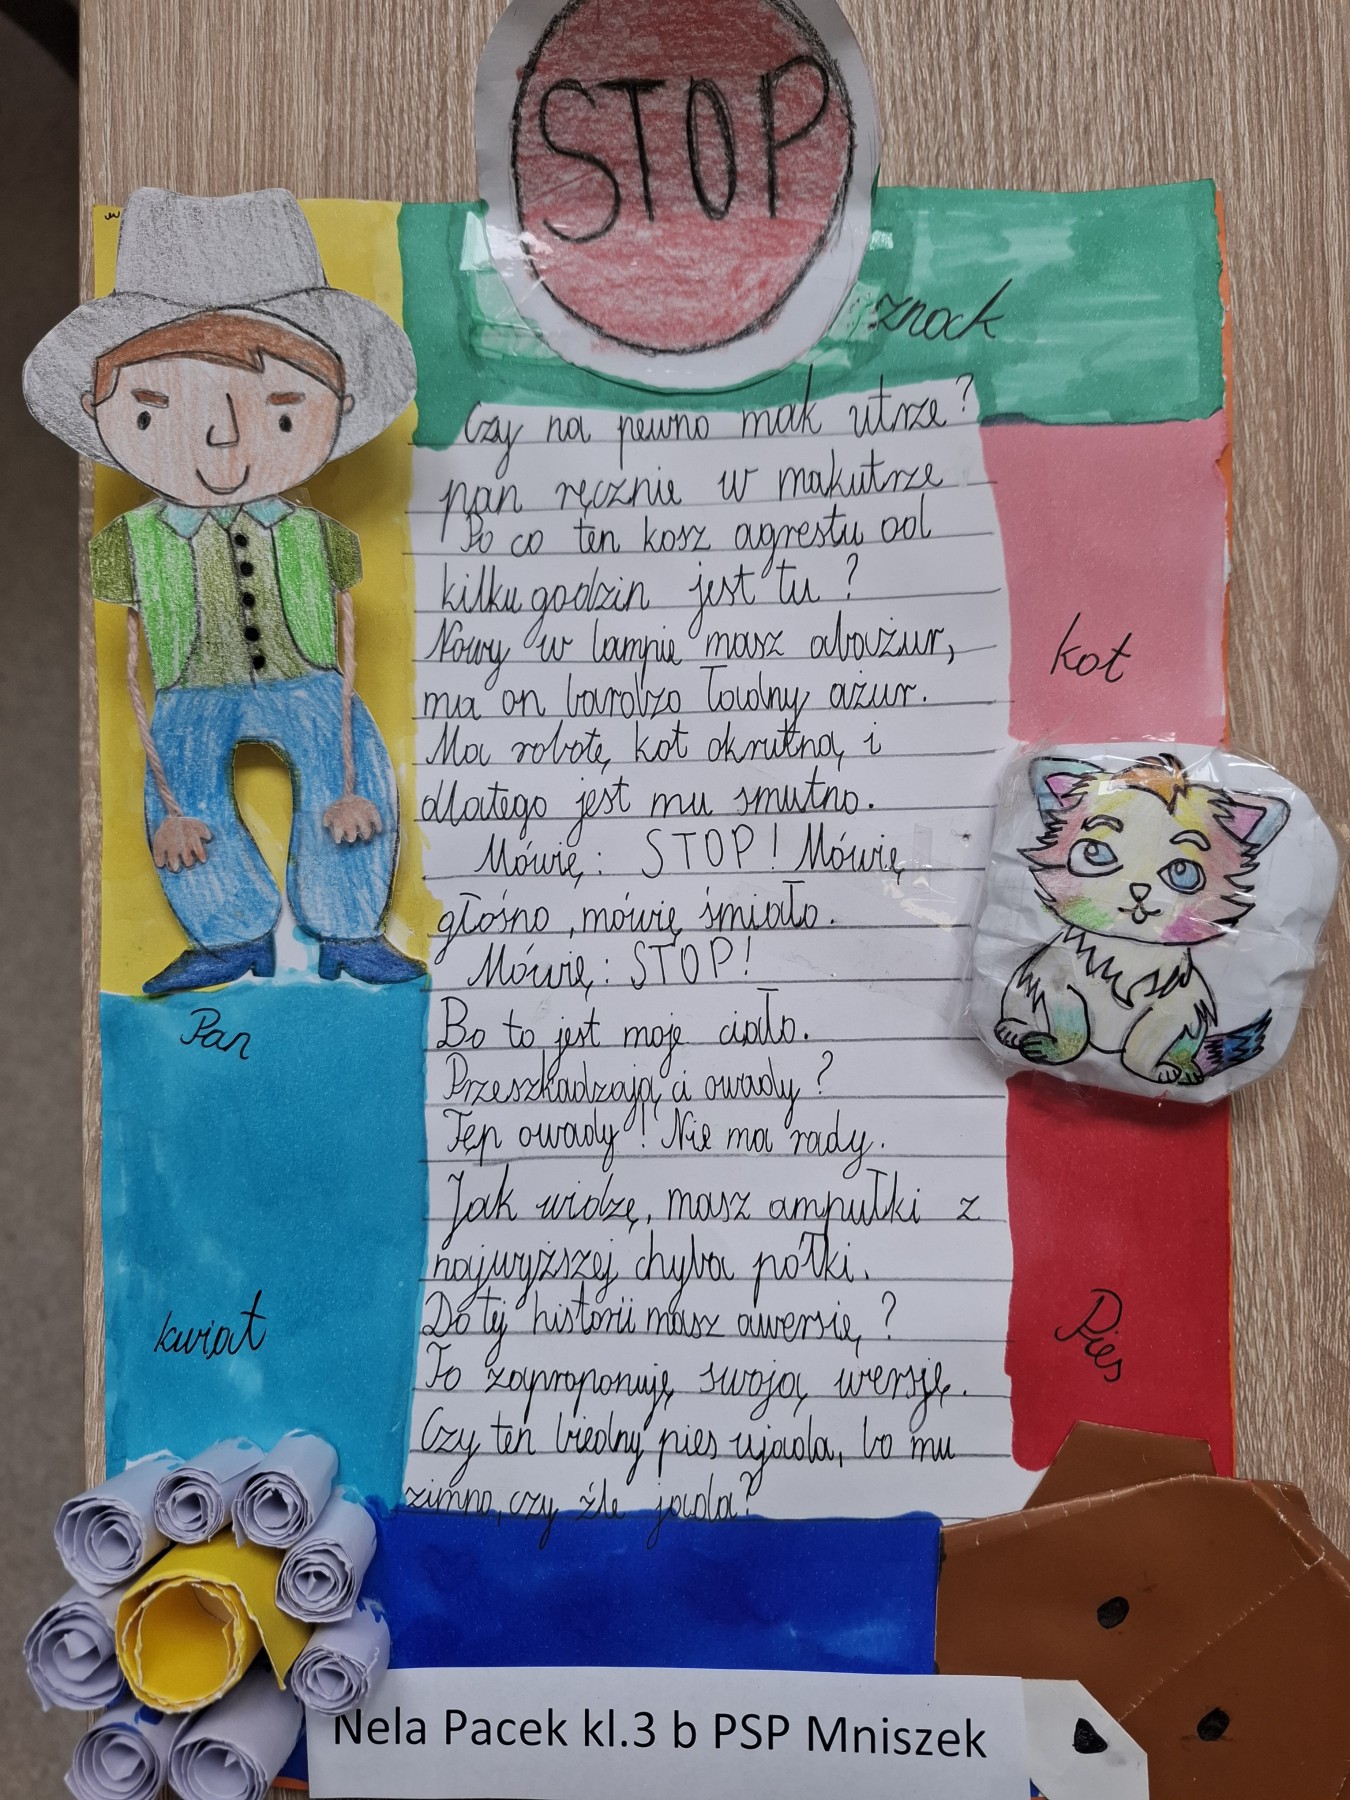 STOP
znak
Czy na pewno mak utrze?
pan ręcznie w makutrze
Po co ten kosz agrestu od
kilku godzin jest tu?
Nowy w lampie masz abażur,
ma on bardzo ładny ażur.
Ma robotę kot okrutną i
dlatego jest mu smutno.
Mówię: STOP! Mówię
głośno, mówię śmiało.
Mówię: STOP!
Bo to jest moje ciało.
Przeszkadzają ci owady?
Tęp owady! Nie ma rady.
Jak widzę, masz ampułki z
najwyższej chyba półki.
Do tej historii masz awersję?
To zaproponuję swoją wersję.
Czy ten biedny pies ujada, bo mu
zimno, czy źle jada?
kot
Pan
kwiat
Pies
Nela Pacek kl.3 b PSP Mniszek